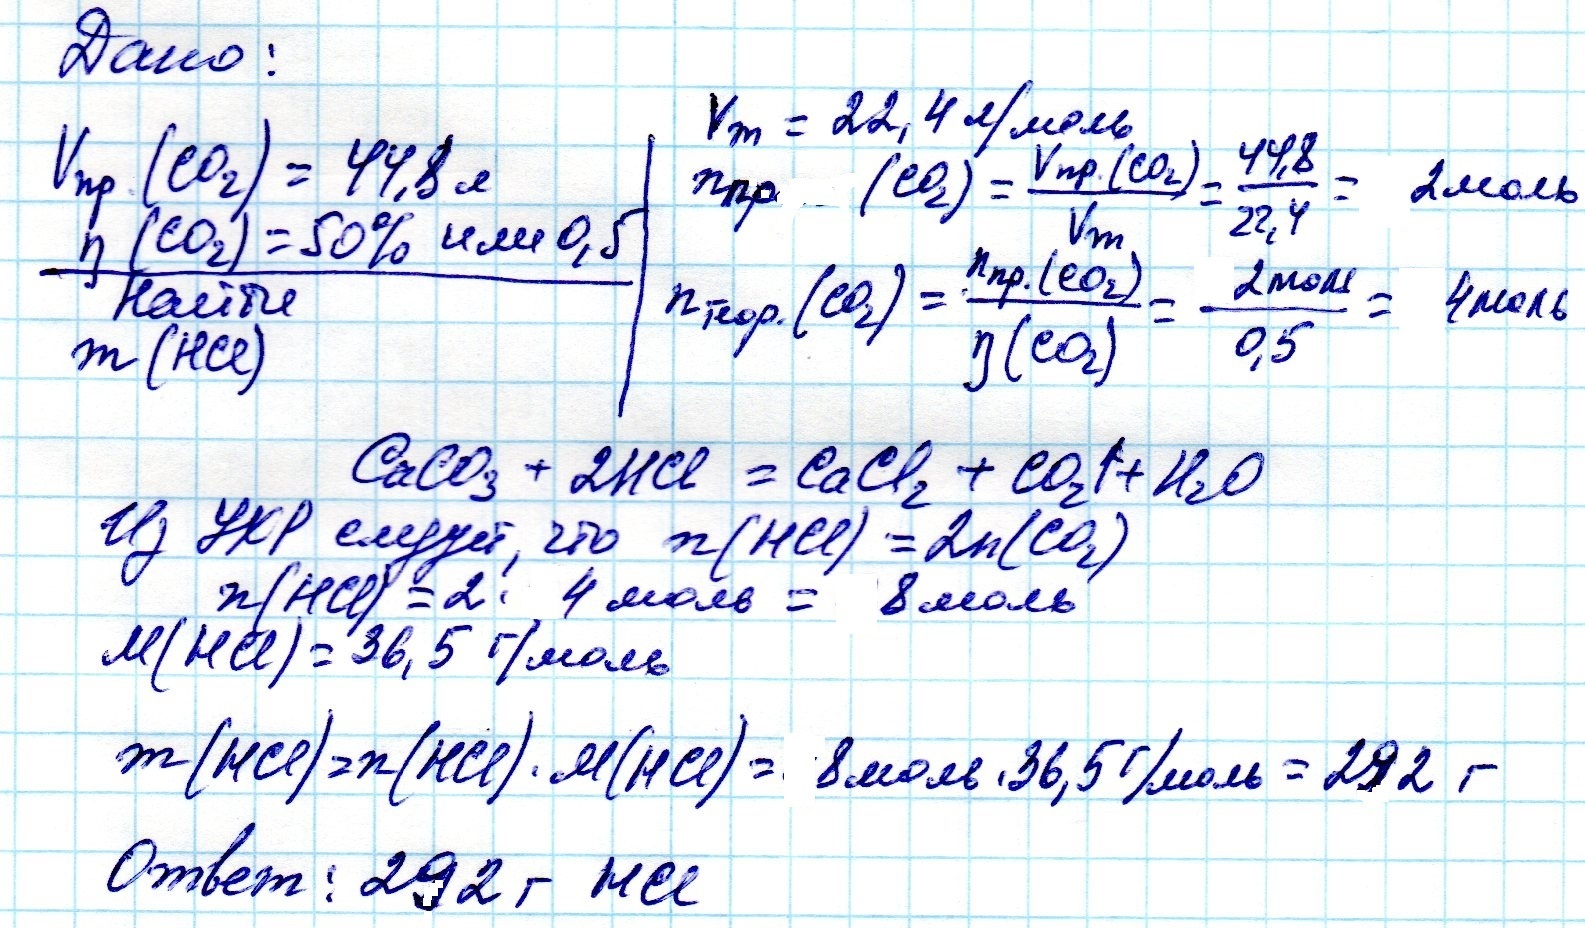 Дано:
Vпр.(CO₂) = 44,8 л
η (CO₂) = 50% или 0,5
Найти
m (HCl)
Vm = 22,4 л/моль
nпр (CO₂) = Vпр.(CO₂)/Vm = 44,8/22,4 = 2 моль
nтеор.(CO₂) = nпр.(CO₂)/η(CO₂) = 2 моль/0,5 = 4 моль
CaCO₃ + 2HCl = CaCl₂ + CO₂↑ + H₂O
Из УХР следует, что n(HCl) = 2n(CO₂)
n(HCl) = 2 · 4 моль = 8 моль
M(HCl) = 36,5 г/моль
m(HCl) = n(HCl) · M(HCl) = 8 моль · 36,5 г/моль = 292 г
Ответ: 292 г HCl